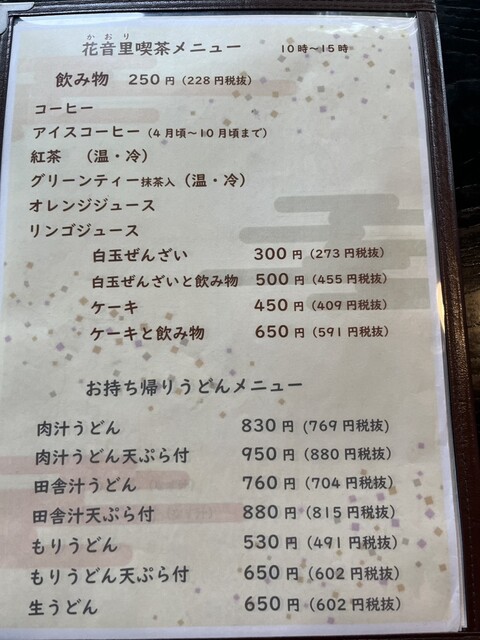 かおり
花音里喫茶メニュー 10時〜15時
飲み物 250円（228円税抜）
コーヒー
アイスコーヒー（4月頃〜10月頃まで）
紅茶 （温・冷）
グリーンティー抹茶入（温・冷）
オレンジジュース
リンゴジュース
白玉ぜんざい 300円（273円税抜）
白玉ぜんざいと飲み物 500円（455円税抜）
ケーキ 450円（409円税抜）
ケーキと飲み物 650円（591円税抜）
お持ち帰りうどんメニュー
肉汁うどん 830円（769円税抜）
肉汁うどん天ぷら付 950円（880円税抜）
田舎汁うどん 760円（704円税抜）
田舎汁天ぷら付 880円（815円税抜）
もりうどん 530円（491円税抜）
もりうどん天ぷら付 650円（602円税抜）
生うどん 650円（602円税抜）